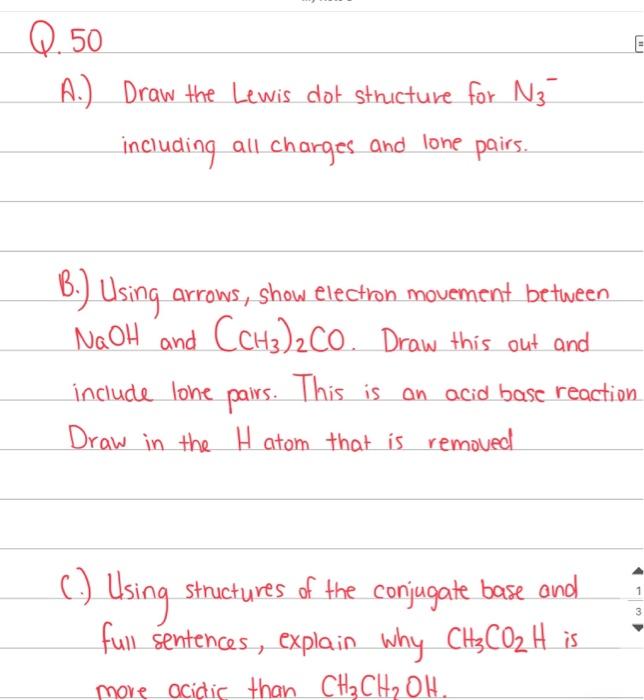 Q. 50
A.) Draw the Lewis dot structure for N₃⁻
including all charges and lone pairs.
B.) Using arrows, show electron movement between
NaOH and (CH₃)₂CO. Draw this out and
include lone pairs. This is an acid base reaction
Draw in the H atom that is removed
C.) Using structures of the conjugate base and
full sentences, explain why CH₃CO₂H is
more acidic than CH₃CH₂OH.
1
3